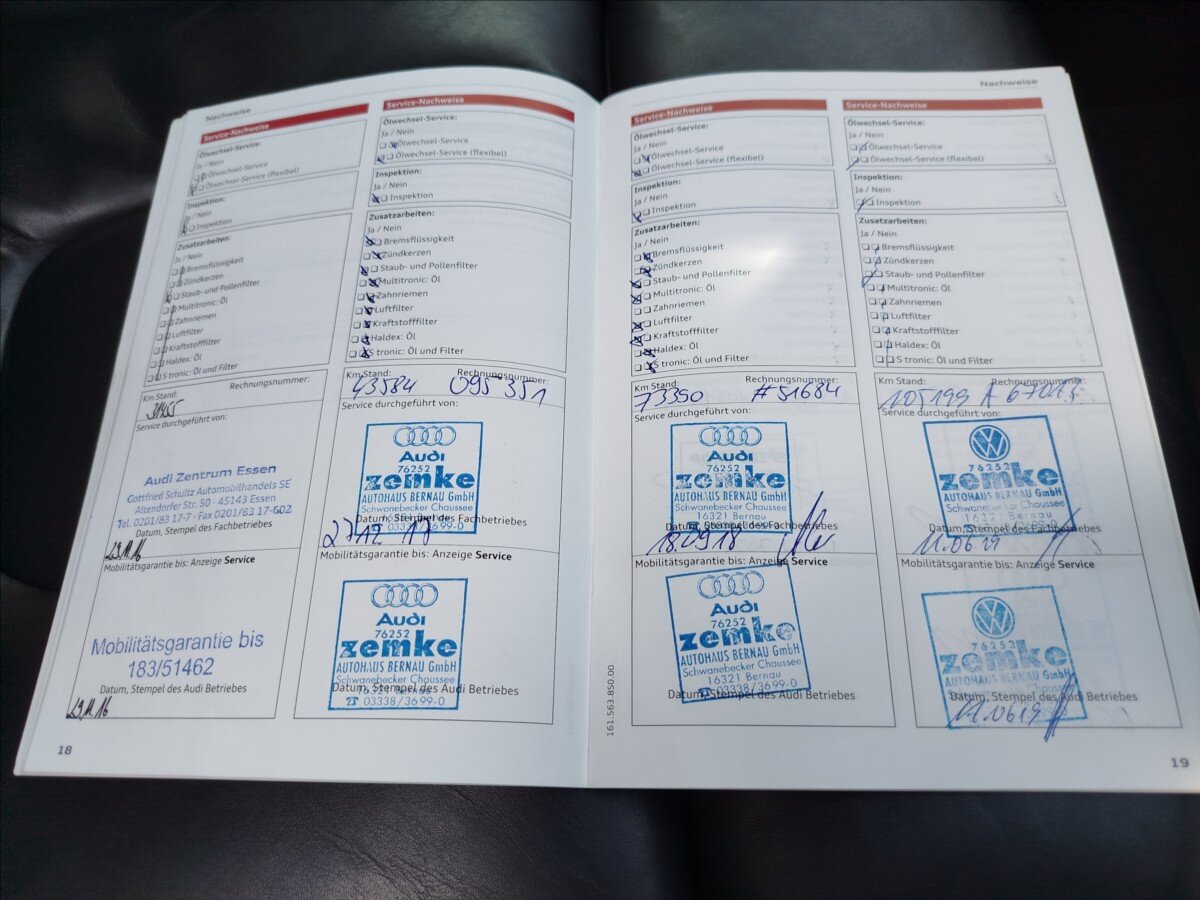 Nachweise
Service-Nachweise
Ölwechsel-Service:
Ja / Nein
Ölwechsel-Service
Ölwechsel-Service (flexibel)
Inspektion:
Ja / Nein
Inspektion
Zusatzarbeiten:
Ja / Nein
Bremsflüssigkeit
Zündkerzen
Staub- und Pollenfilter
Multitronic: Öl
Zahnriemen
Luftfilter
Kraftstofffilter
Haldex: Öl
S tronic: Öl und Filter
Km Stand: Rechnungsnummer:
31455
Service durchgeführt von:
Audi Zentrum Essen
Gottfried Schultz Automobilhandels SE
Altendorfer Str. 50 · 45143 Essen
Tel. 0201/83 17-7 · Fax 0201/83 17-602
Datum, Stempel des Fachbetriebes
29.11.16
Mobilitätsgarantie bis: Anzeige Service
Mobilitätsgarantie bis
183/51462
Datum, Stempel des Audi Betriebes
29.11.16
18
Service-Nachweise
Ölwechsel-Service:
Ja / Nein
Ölwechsel-Service
Ölwechsel-Service (flexibel)
Inspektion:
Ja / Nein
Inspektion
Zusatzarbeiten:
Ja / Nein
Bremsflüssigkeit
Zündkerzen
Staub- und Pollenfilter
Multitronic: Öl
Zahnriemen
Luftfilter
Kraftstofffilter
Haldex: Öl
S tronic: Öl und Filter
Km Stand: Rechnungsnummer:
43584 095351
Service durchgeführt von:
Audi
76252
zemke
AUTOHAUS BERNAU GmbH
Schwanebecker Chaussee
16321 Bernau
Datum, Stempel des Fachbetriebes
☎ 03338/3699-0
27 12 17
Mobilitätsgarantie bis: Anzeige Service
Audi
76252
zemke
AUTOHAUS BERNAU GmbH
Schwanebecker Chaussee
16321 Bernau
Datum, Stempel des Audi Betriebes
☎ 03338/3699-0
Nachweise
Service-Nachweise
Ölwechsel-Service:
Ja / Nein
Ölwechsel-Service
Ölwechsel-Service (flexibel)
Inspektion:
Ja / Nein
Inspektion
Zusatzarbeiten:
Ja / Nein
Bremsflüssigkeit
Zündkerzen
Staub- und Pollenfilter
Multitronic: Öl
Zahnriemen
Luftfilter
Kraftstofffilter
Haldex: Öl
S tronic: Öl und Filter
Km Stand: Rechnungsnummer:
73350 #51684
Service durchgeführt von:
Audi
76252
zemke
AUTOHAUS BERNAU GmbH
Schwanebecker Chaussee
16321 Bernau
Datum, Stempel des Fachbetriebes
18.09.18
Mobilitätsgarantie bis: Anzeige Service
Audi
76252
zemke
AUTOHAUS BERNAU GmbH
Schwanebecker Chaussee
16321 Bernau
Datum, Stempel des Audi Betriebes
☎ 03338/3699-0
161.563.850.00
Service-Nachweise
Ölwechsel-Service:
Ja / Nein
Ölwechsel-Service
Ölwechsel-Service (flexibel)
Inspektion:
Ja / Nein
Inspektion
Zusatzarbeiten:
Ja / Nein
Bremsflüssigkeit
Zündkerzen
Staub- und Pollenfilter
Multitronic: Öl
Zahnriemen
Luftfilter
Kraftstofffilter
Haldex: Öl
S tronic: Öl und Filter
Km Stand: Rechnungsnummer:
105199
Service durchgeführt von:
76252
zemke
AUTOHAUS BERNAU GmbH
Schwanebecker Chaussee
16321 Bernau
Datum, Stempel des Fachbetriebes
11.06.19
Mobilitätsgarantie bis: Anzeige Service
76252
zemke
AUTOHAUS BERNAU GmbH
Schwanebecker Chaussee
16321 Bernau
Datum, Stempel des Audi Betriebes
11.06.19
19